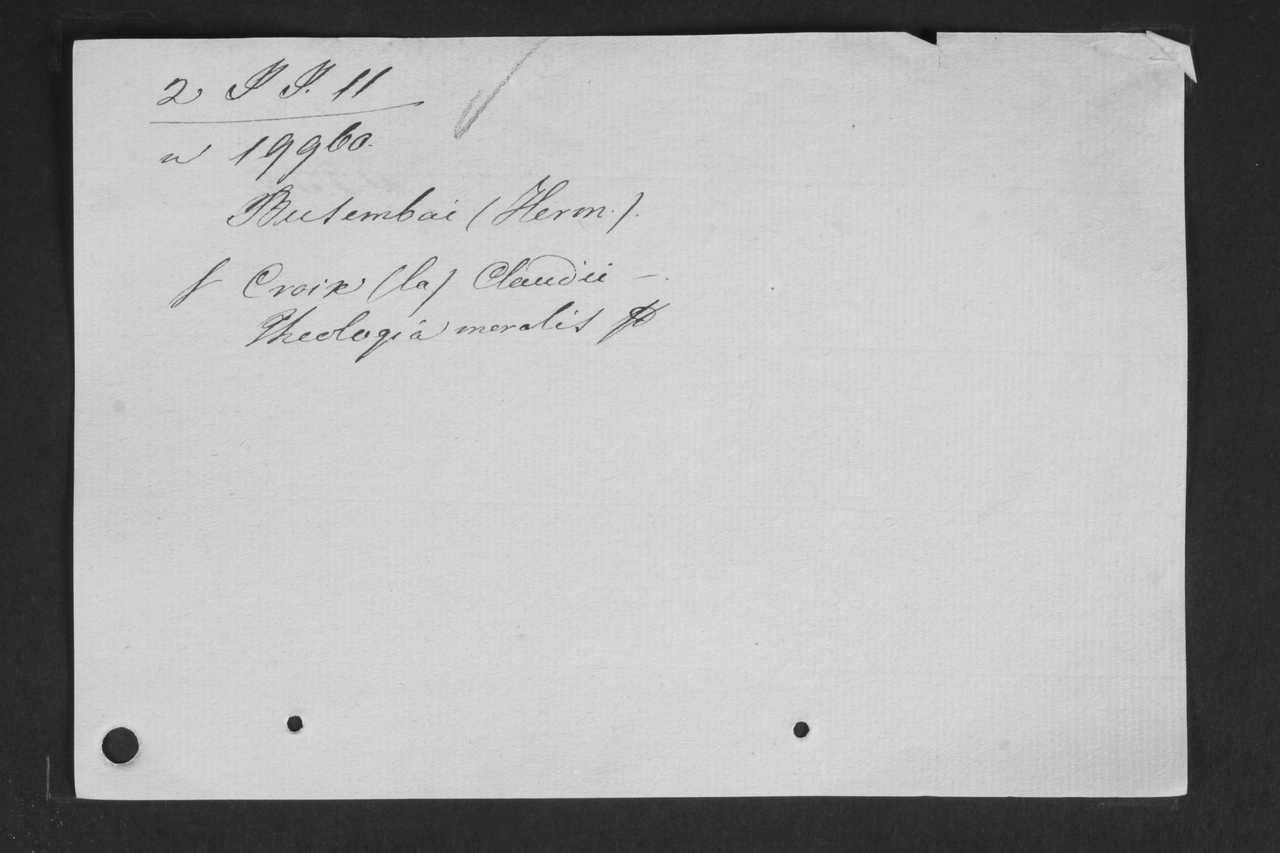 2 P P. 11
n 19960.
Busembai (Herm.).
f Croix (la) Claudii —.
Theologia moralis